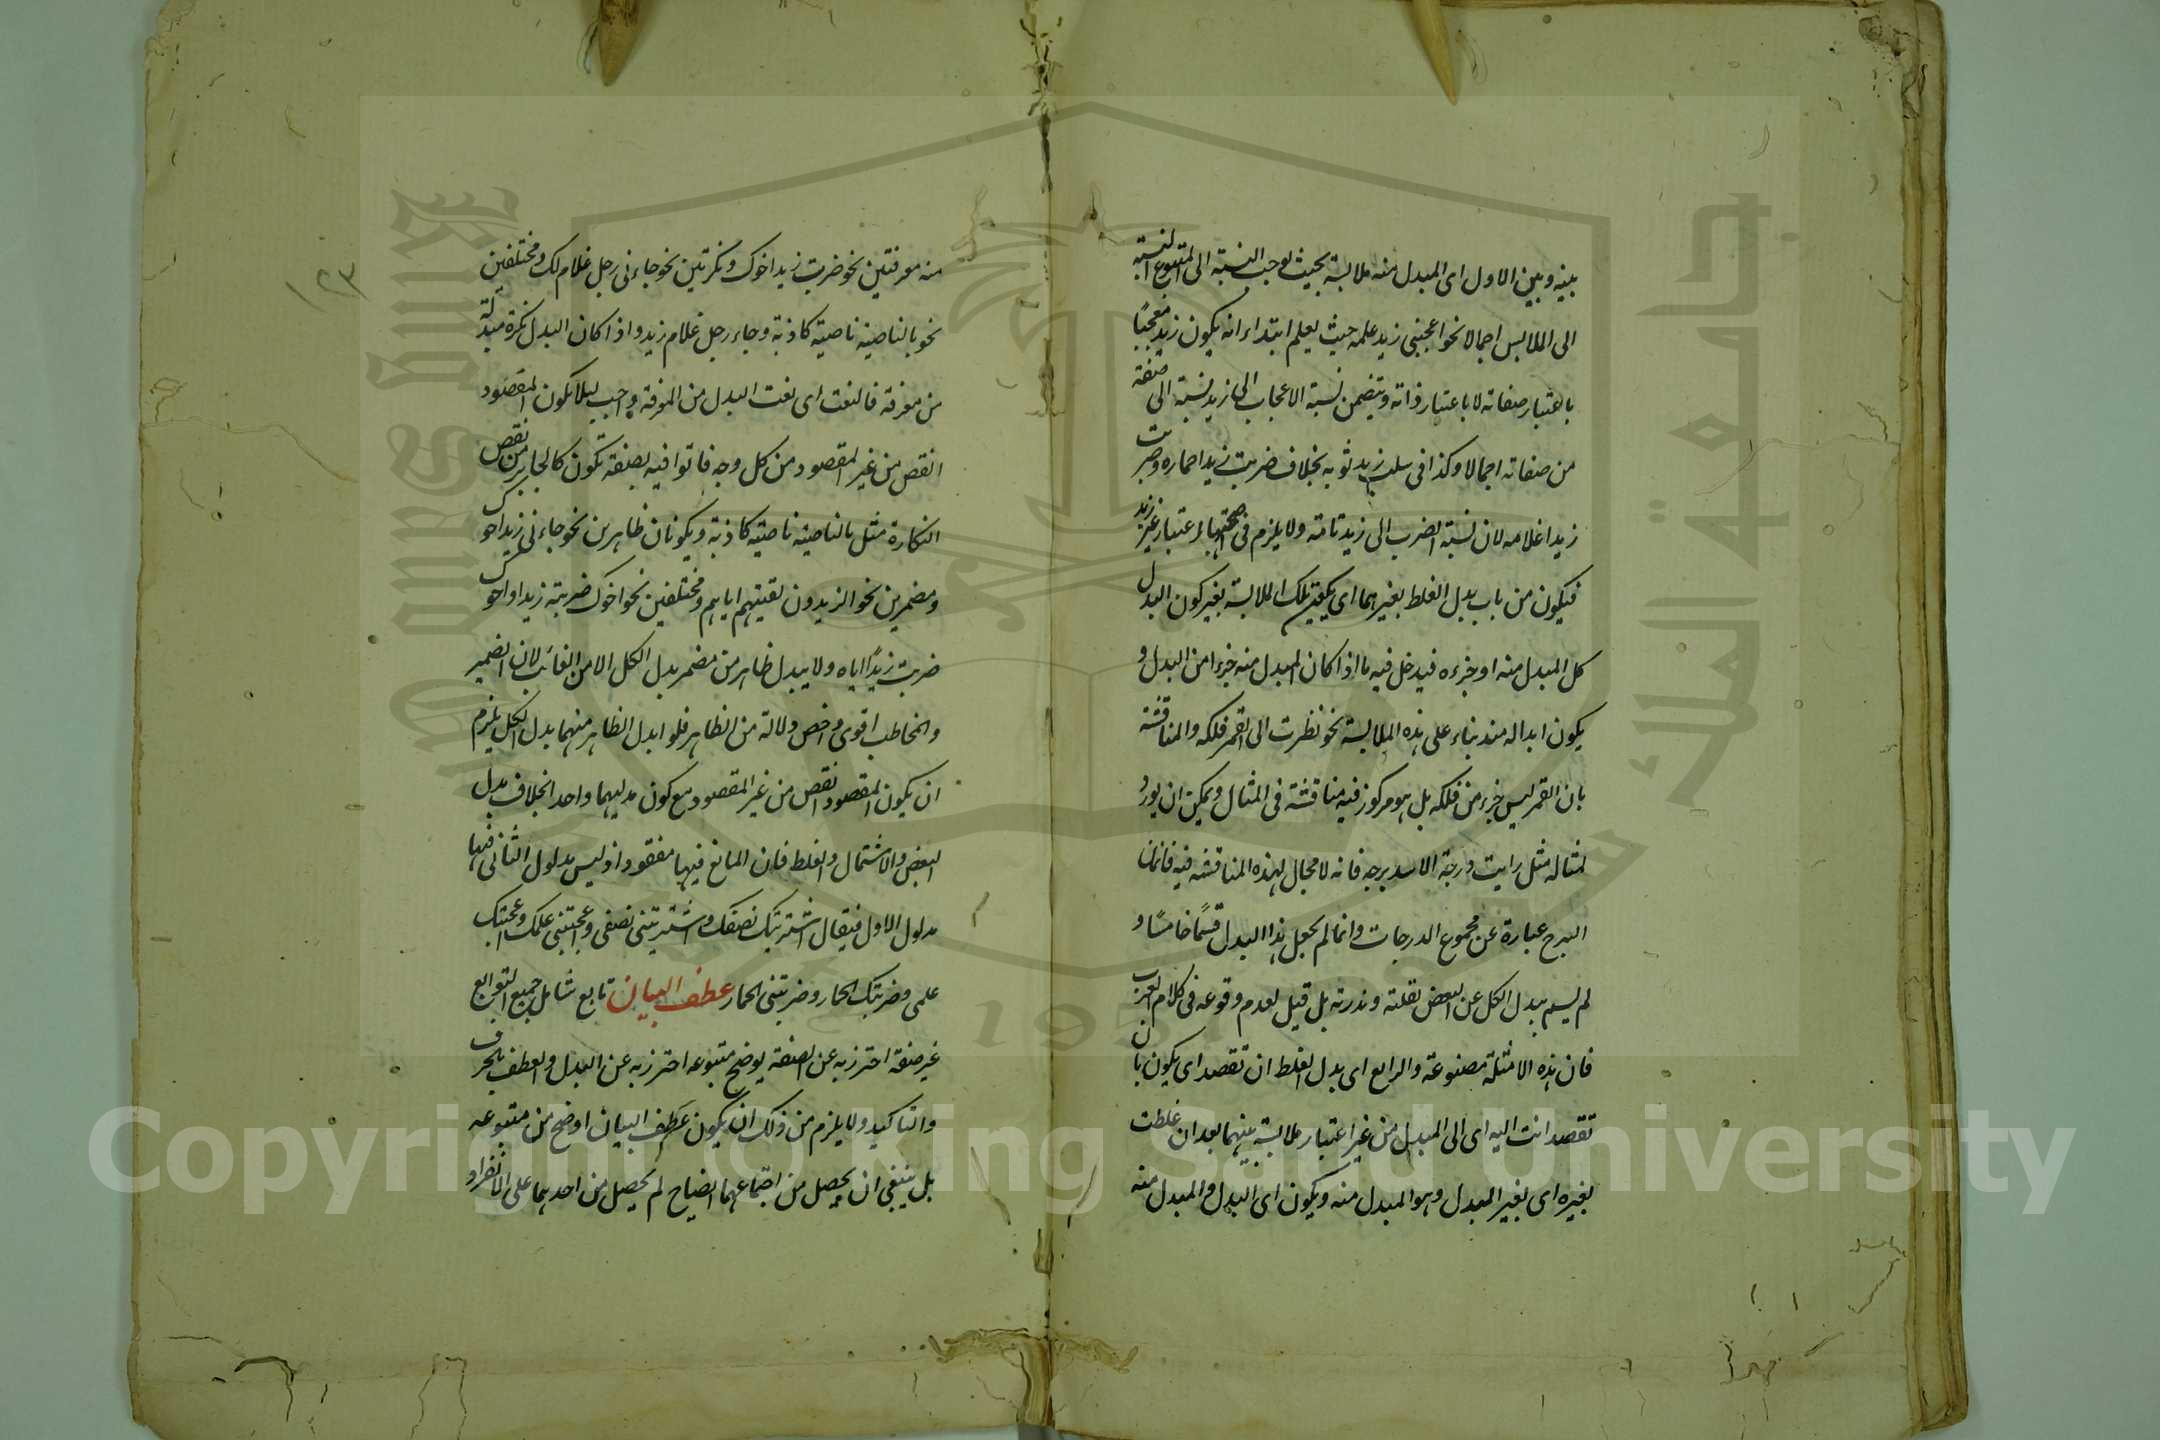 بينه وبين الاول اى المبدل منه ملابسة بحيث يوجب النسبة الى المتبوع النسبة
الى الملابس اجمالا نحو اعجبنى زيد علمه حيث يعلم ابتداء انه يكون زيد معجبًا
باعتبار صفاته لا باعتبار ذاته ويتضمن نسبة الاعجاب الى زيد نسبة الى صفة
من صفاته اجمالا وكذا فى سلب زيد ثوبه بخلاف ضربت زيدا حماره وضربت
زيدا غلامه لان نسبة الضرب الى زيد تامة ولا يلزم فى صحتها اعتبار غير زيد
فيكون من باب بدل الغلط بغيرهما اى يكون تلك الملابسة بغير كون البدل
كل المبدل منه او جزءه فيدخل فيه ما اذا كان المبدل منه جزءا من البدل و
يكون ابداله منه بناء على هذه الملابسة نحو نظرت الى القمر فلكه والمناقشة
بان القمر ليس جزء من فلكه بل هو مركوز فيه مناقشة فى المثال ويمكن ان يورد
لمثاله مثل رايت درجة الاسد برجه فانه لا مجال لهذه المناقشه فيه فان
البرج عبارة عن مجموع الدرجات وانما لم يجعل هذا البدل قسمًا خامسًا و
لم يسم ببدل الكل عن البعض لقلته وندرته بل قيل لعدم وقوعه فى كلام العرب
فان هذه الامثلة مصنوعة والرابع اى بدل الغلط ان تقصد اى يكون بان
تقصد انت اليه اى الى المبدل من غير اعتبار ملابسة بينهما بعد ان غلطت
بغيره اى بغير المبدل وهو المبدل منه ويكون اى البدل والمبدل منه
١٢٣
منه معرفتين نحو ضربت زيدا اخوك ونكرتين نحو جاءنى رجل غلام لك ومختلفين
نحو بالناصية ناصية كاذبة وجاء رجل غلام زيد واذا كان البدل نكرة مبدلة
من معرفة فالنعت اى نعت البدل من المعرفة واجب لئلا يكون المقصود
انقص من غير المقصود من كل وجه فاتوا فيه بصفة تكون كالجابر من نقص
النكارة مثل بالناصية ناصية كاذبة ويكونان ظاهرين نحو جاءنى زيد اخوك
ومضمرين نحو الزيدون لقيتهم اياهم ومختلفين نحو اخوك ضربته زيدا واخوك
ضربت زيدًا اياه ولا يبدل ظاهر من مضمر بدل الكل الا من الغائب لان الضمير
والمخاطب اقوى واخص دلالة من الظاهر فلو ابدل الظاهر منهما بدل الكل يلزم
ان يكون المقصود انقص من غير المقصود مع كون مدليهما واحد ابخلاف بدل
البعض والاشتمال والغلط فان المانع فيها مفقود اذ ليس مدلول الثانى فيها
مدلول الاول فيقال اشتريتك نصفك واشتريتنى نصفى واعجبتنى علمك واعجبتك
علمى وضربتك الحمار وضربتنى الحمار عطف البيان تابع شامل جميع التوابع
غير صفة احترز به عن الصفة يوضح متبوعه احترز به عن البدل والعطف بالحرف
والتاكيد ولا يلزم من ذلك ان يكون عطف البيان اوضح من متبوعه
بل ينبغى ان يحصل من اجتماعهما ايضاح لم يحصل من احدهما على الانفراد
جامعة الملك سعود
King Saud University
1957
Copyright © King Saud University